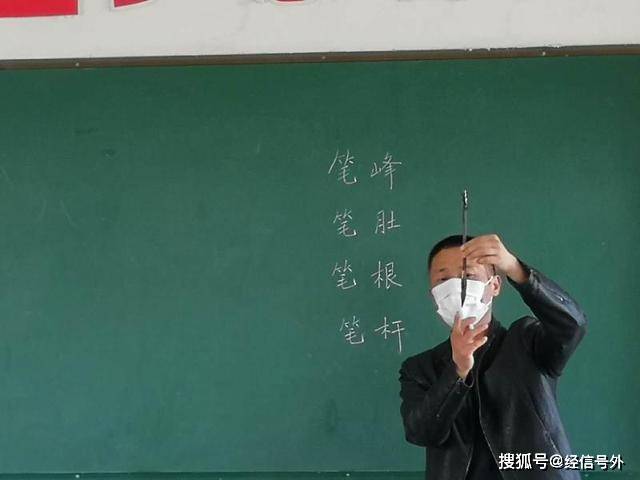 笔峰
笔肚
笔根
笔杆
搜狐号@经信号外